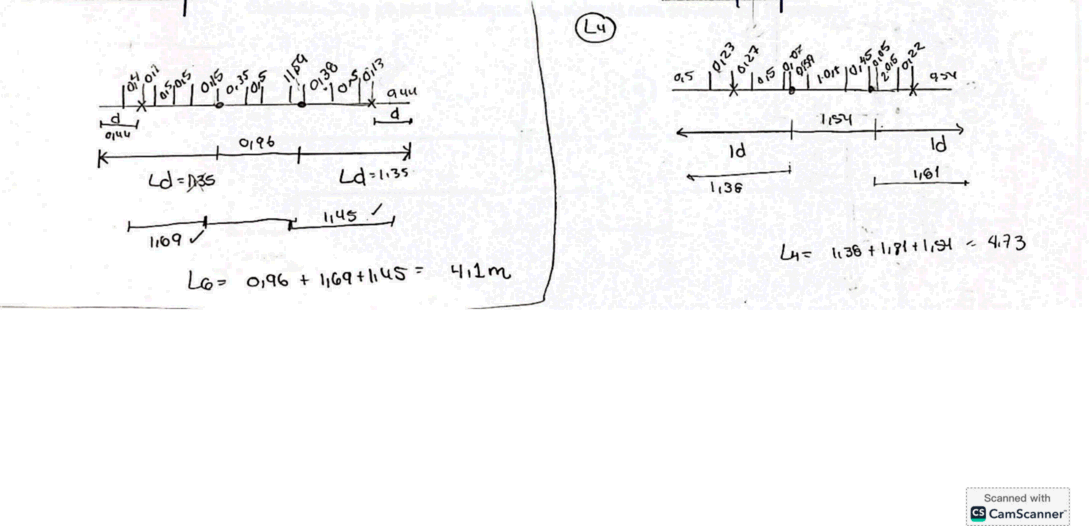 0,4 0,1 0,5 0,5 0,15 0,35 0,5 0,38 0,5 0,13
d
0,44
0,44
d
0,96
Ld = 1,35
Ld = 1,35
1,69 ✓
1,45 ✓
L6 = 0,96 + 1,69 + 1,45 = 4,1m
L4
0,5 0,23 0,27 0,5 0,59 1.015 0,45 0,05 2.05 0,22
1,54
ld
ld
1,38
L4 = 1,38 + 1,81 + 1,54 = 4.73
Scanned with
CS CamScanner